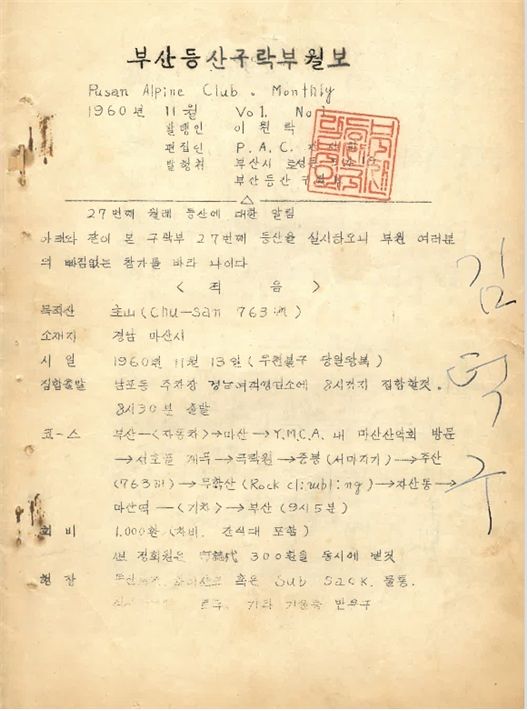 부산등산구락부월보
Pusan Alpine Club. Monthly
1960년 11월 Vol. No
발행인 이원락
편집인 P.A.C.
발행처 부산시
부산등산구락부
27번째 월례 등산에 대한 알림
아래와 같이 본 구락부 27번째 등산을 실시하오니 부원 여러분
의 빠짐없는 참가를 바라 나이다
< 적 음 >
목적산 主山(Chu-San 763m)
소재지 경남 마산시
시 일 1960년 11월 13일 (우천불구 당일왕복)
집합출발 남포동 주차장 경남여객영업소에 8시까지 집합할것.
8시30분 출발
코-스 부산—<자동차>→마산→Y.M.C.A. 내 마산산악회 방문
→서호골 →중봉(서마지기)→주산
(763m)→무학산(Rock climbling)→자산동→
마산역—<기차>→부산(9시5분)
회 비 1,000환(차비. 간식대 포함)
但 정회원은 300환을 동시에 낼것
혹은 Sub Sack. 물통.
기타 반우구
김
덕
구